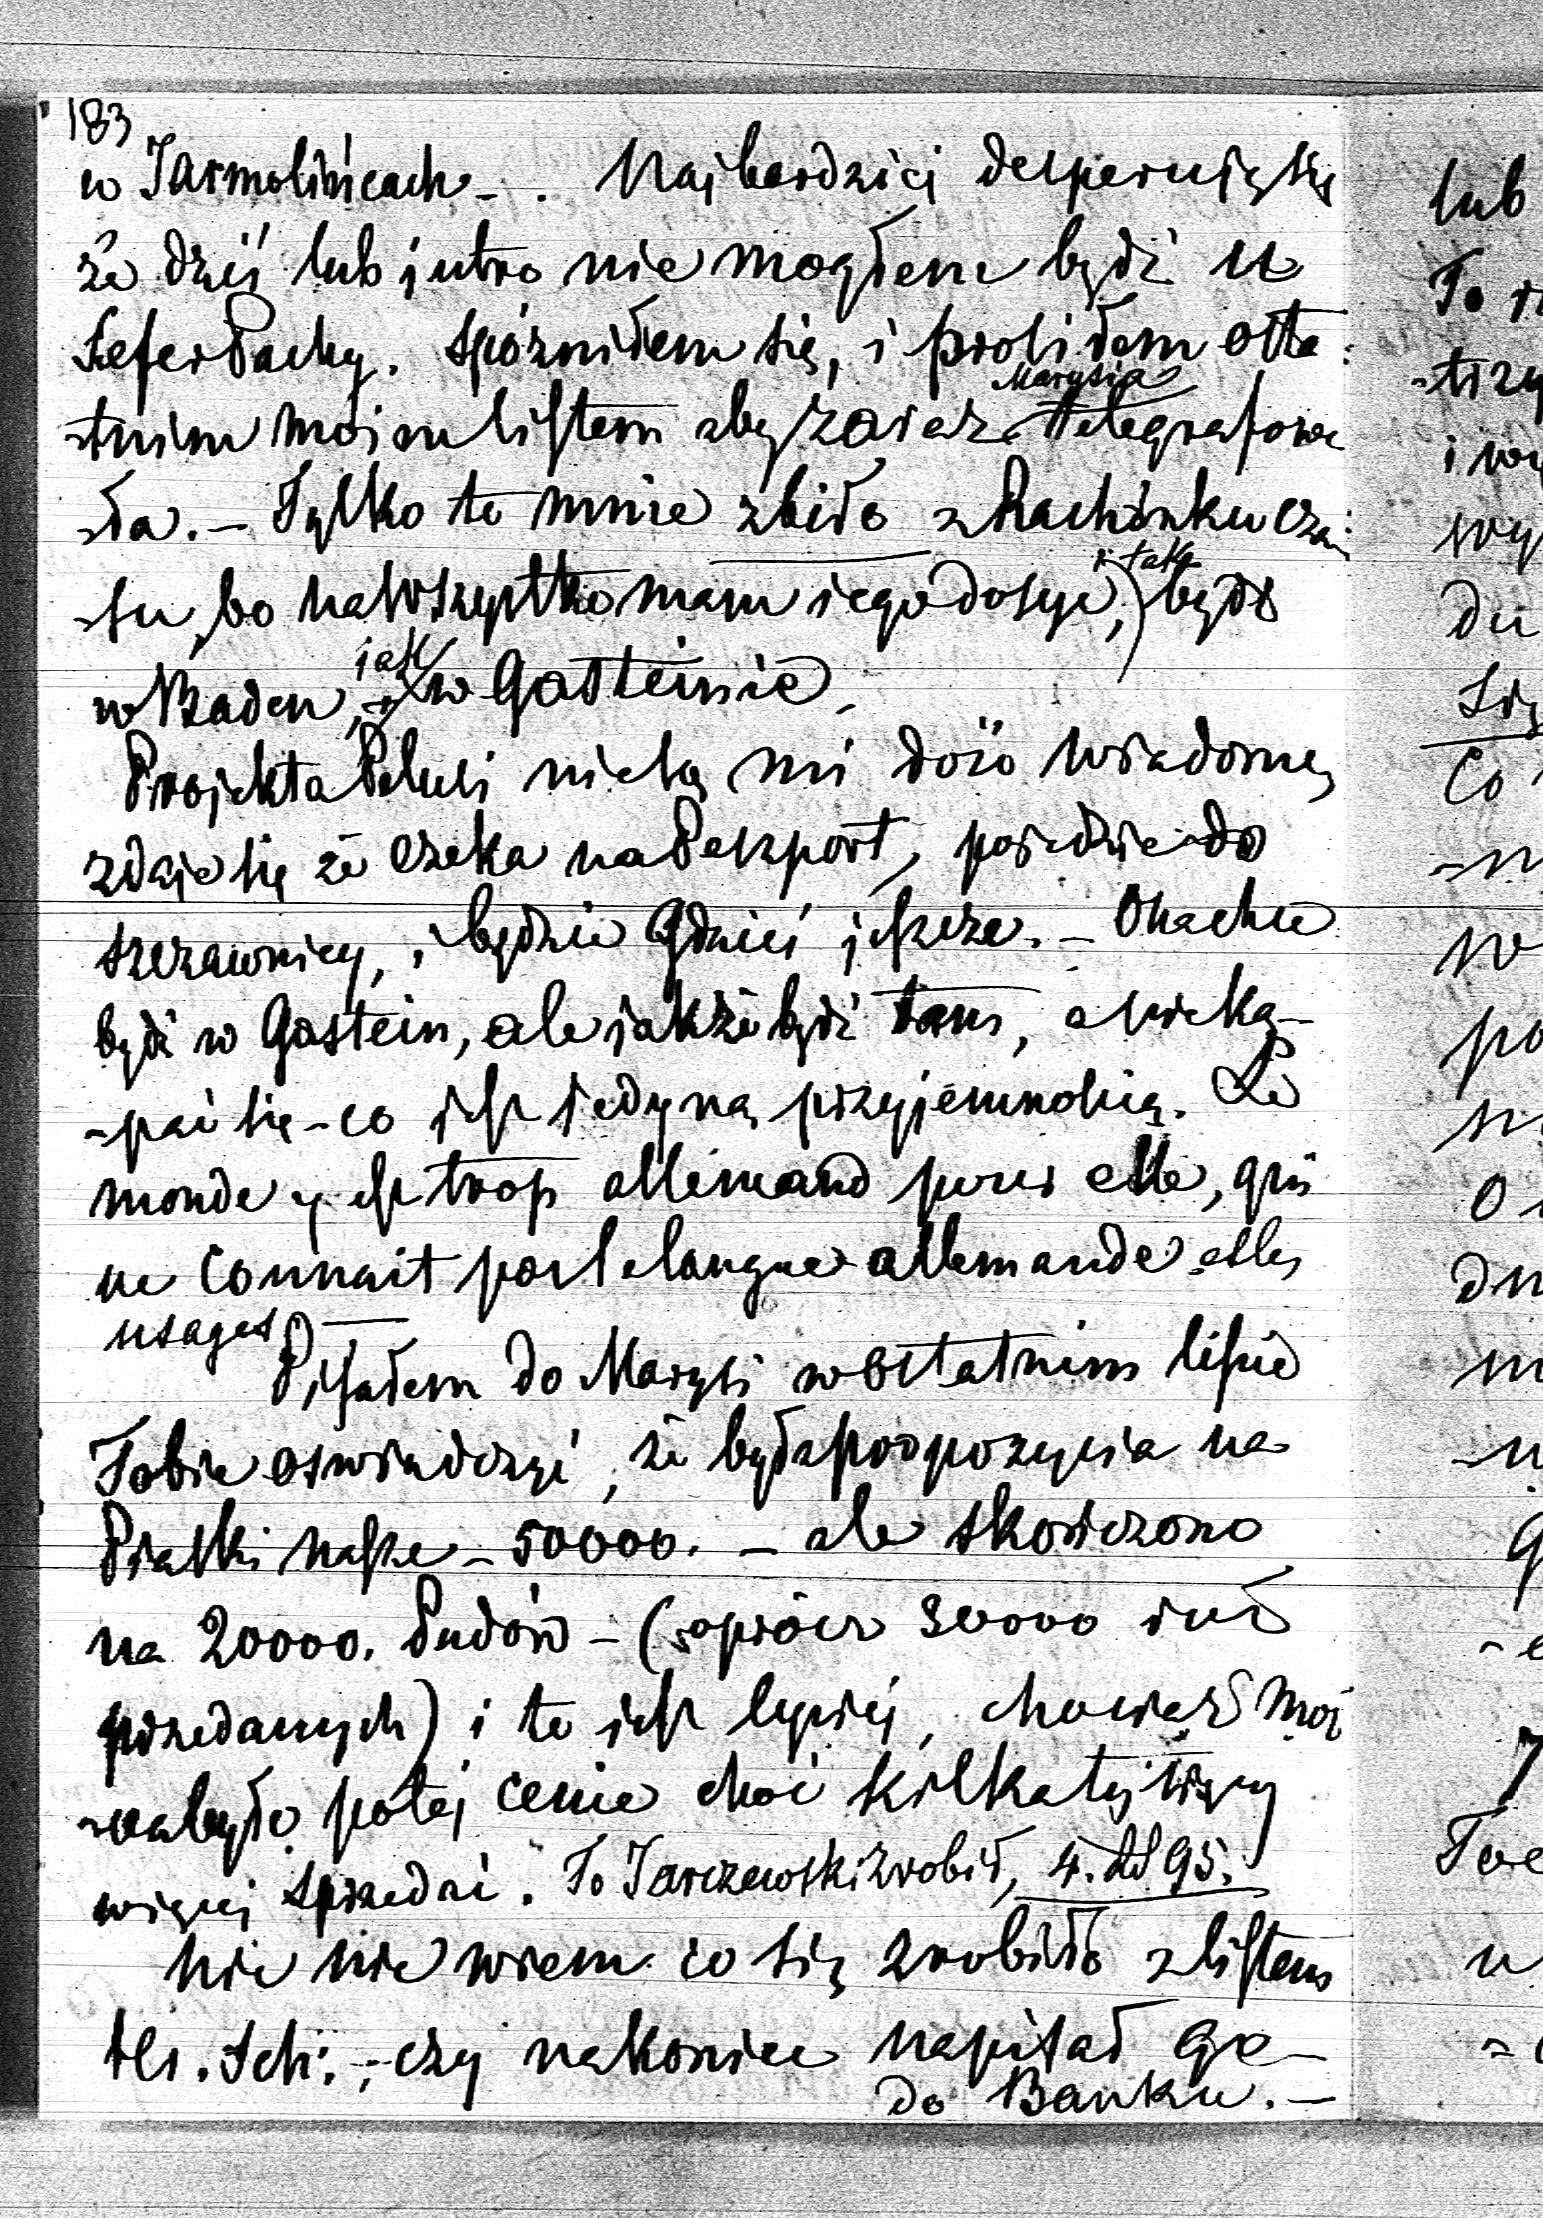 183
w Jarmolińcach - . Najbardziej desperuję się
że dziś lub jutro nie mogłem bydź u
Sefer Paszy. Spóźniłem się, i prosiłem osta:
-tnim moim listem aby zaraz Marysia telegrafowa
-ła. - Tylko to mnie zbiło z Rachunku cza:
-su, bo na wszystko mam jego dosyć, i tak bydź
w Baden, jak w Gasteinie.
Projekta Peluli nie są mi dość wiadome,
zdaje się że czeka na Paszport, pojedzie do
Szczawnicy, i będzie gdzieś jeszcze. - Ona chce
bydź w Gastein, ale jakże bydź tam, a nie ką-
-pać się - co jest jedyną przyjemnością. Le
monde y est trop allemand pour elle, qui
ne connait pas la langue allemande et les
usages. -
Pisałem do Marysi w ostatnim liście
Tobie oświadczyć, że była propozycia na
Piaski nasze - 50000. - ale skończono
na 20000. Pudów - (oprócz 30000 już
przedanych) i to jest lepiej, chociaż mo
-żna było po tej cenie choć kilka tysięcy
więcej sprzedać. To Jarczewski zrobił, 4.
Nic nie wiem co się zrobiło z listem
Sch: ; czy nakoniec napisał go
do Banku. -
lub
To
-trzy
i wy
wy
du
Co
w
po
o